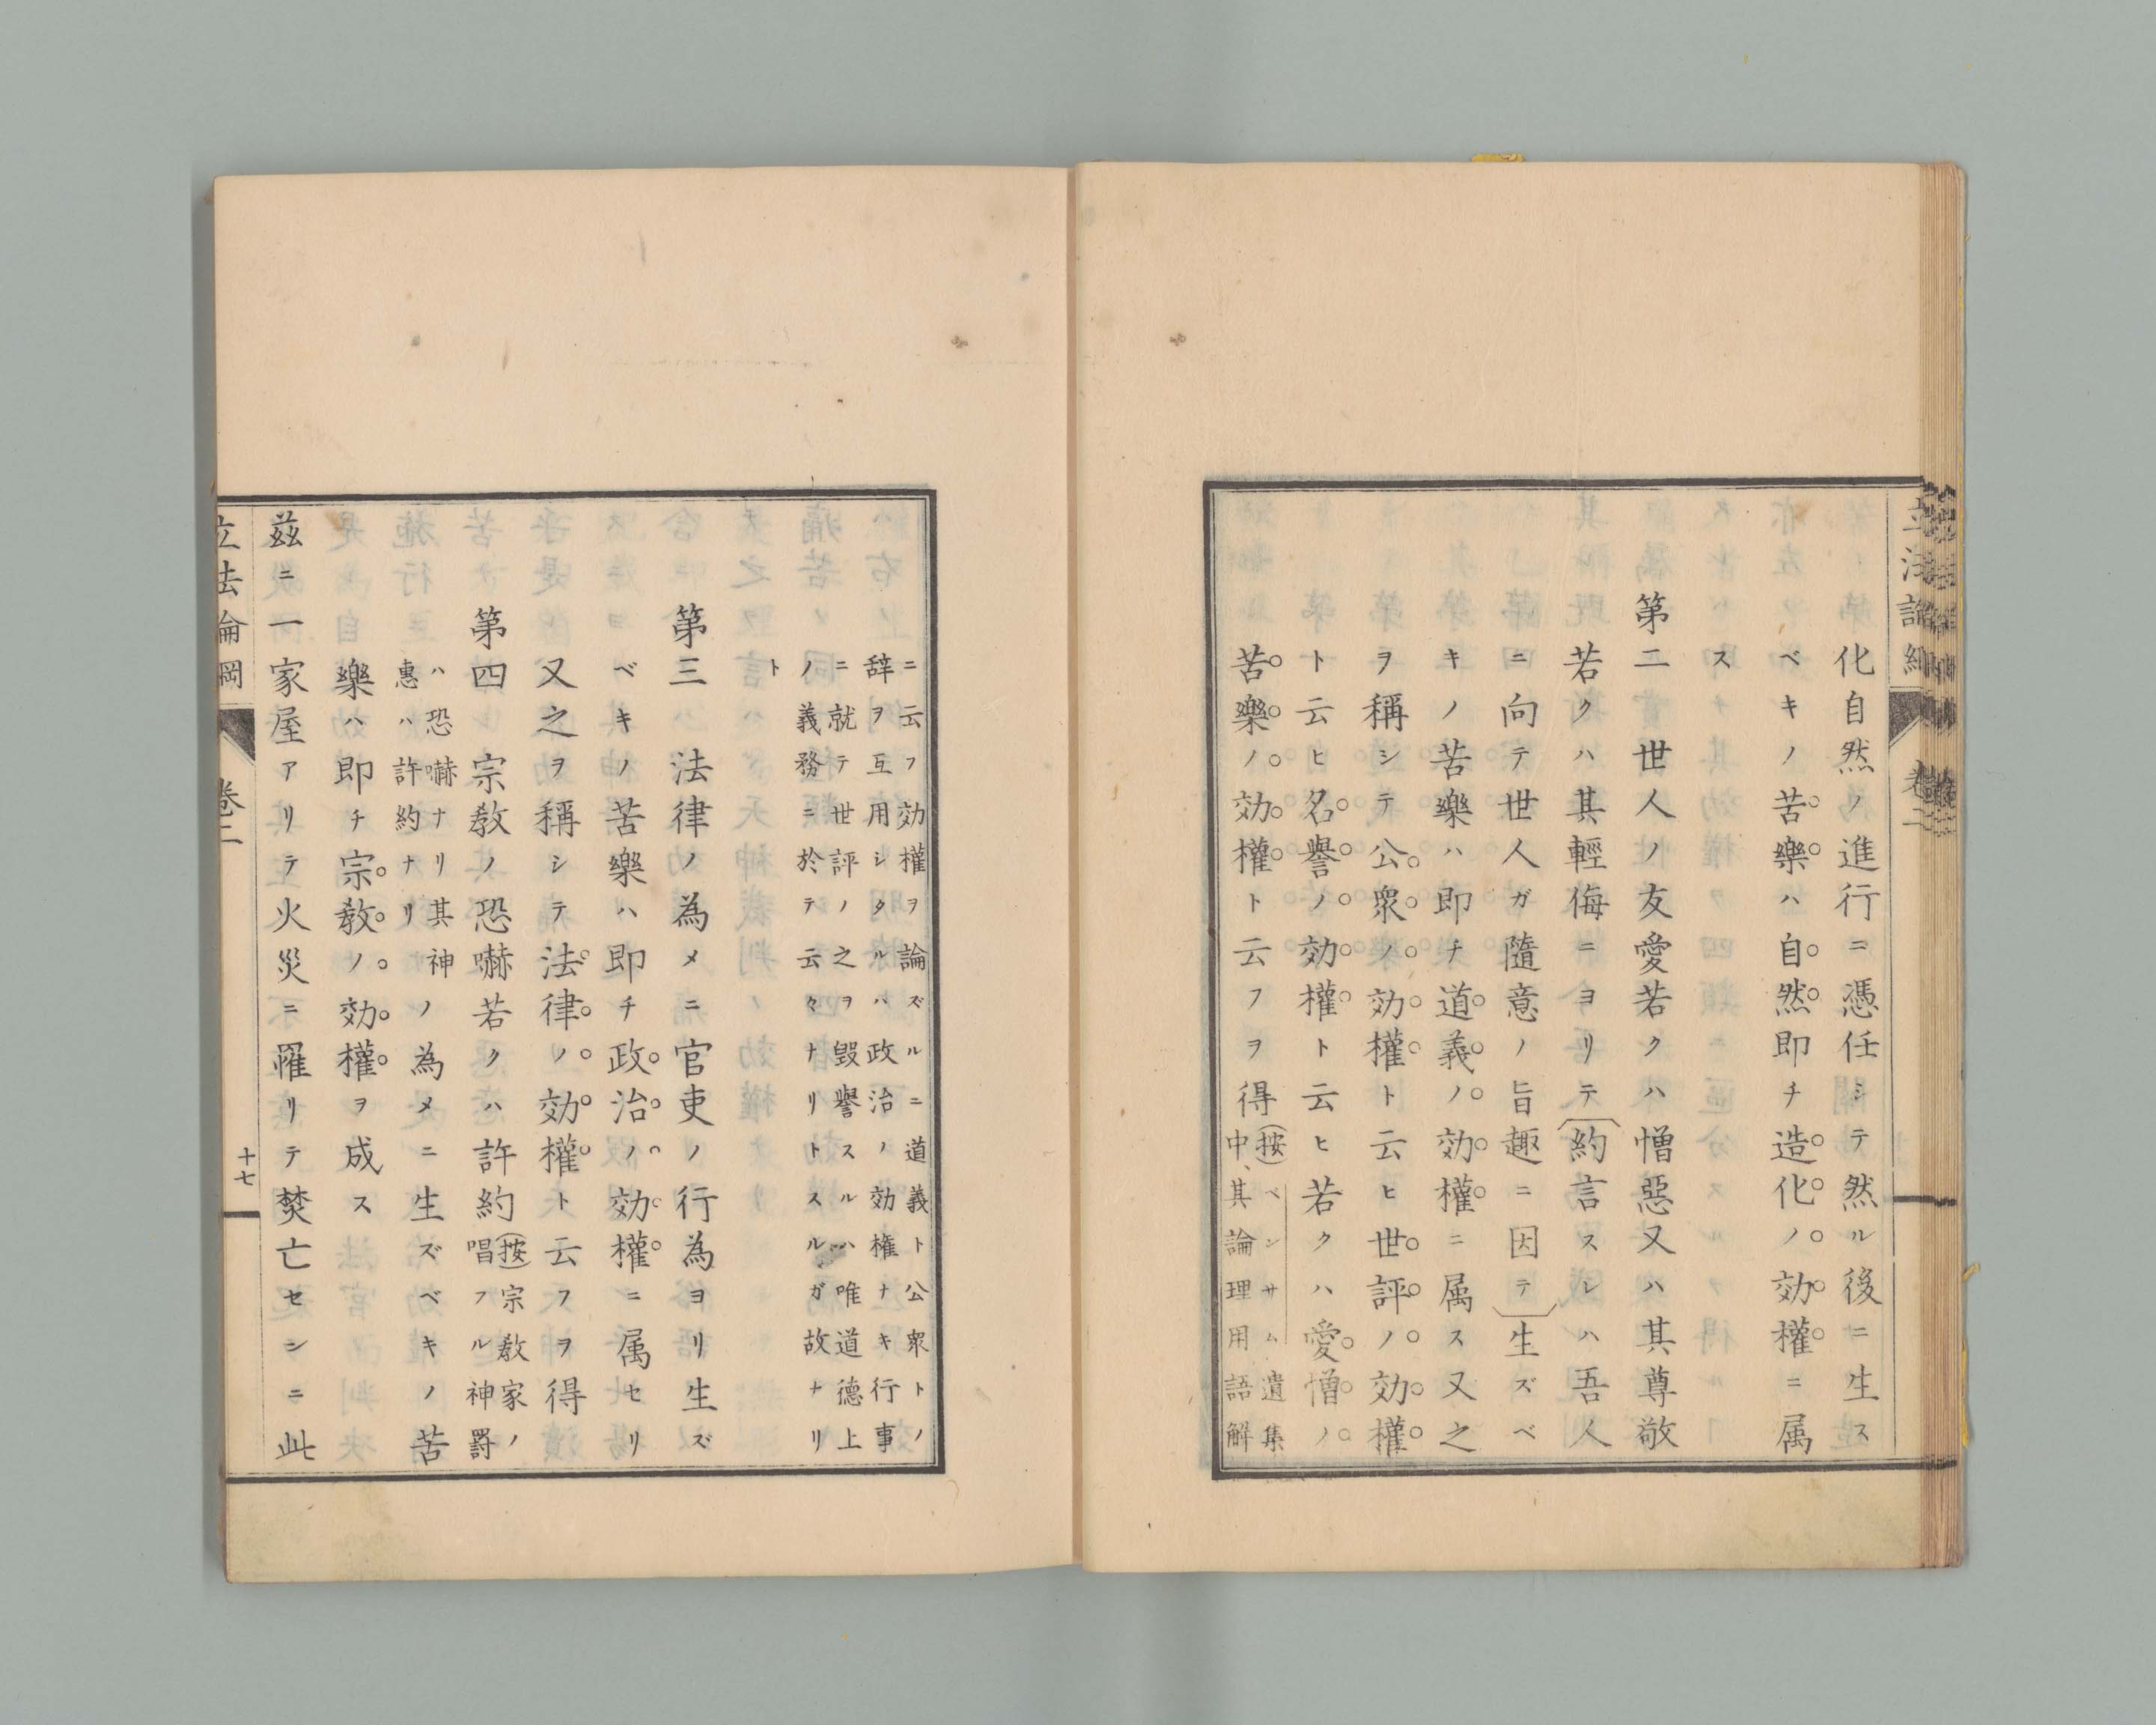 立法論綱 卷二
化自然ノ進行ニ憑任シテ然ル後ニ生ス
ベキノ苦樂ハ自然即チ造化ノ効權ニ属
ス
第二 世人ノ友愛若クハ憎惡又ハ其尊敬
若クハ其輕侮ニヨリテ(約言スレハ吾人
ニ向テ世人ガ隨意ノ旨趣ニ因テ)生ズベ
キノ苦樂ハ即チ道義ノ効權ニ属ス又之
ヲ稱シテ公衆ノ効權ト云ヒ世評ノ効權
ト云ヒ名譽ノ効權ト云ヒ若クハ愛憎ノ
苦樂ノ効權ト云フヲ得
(按)ベンサム遺集
中、其論理用語解
ニ云フ効權ヲ論ズルニ道義ト公衆トノ
辞ヲ互用シタルハ政治ノ効権ナキ行事
ニ就テ世評ノ之ヲ毀譽スルハ唯道德上
ノ義務ニ於テ云々ナリトスルガ故ナリ
ト
第三 法律ノ為メニ官吏ノ行為ヨリ生ズ
ベキノ苦樂ハ即チ政治ノ効權ニ属セリ
又之ヲ稱シテ法律ノ効權ト云フヲ得
第四 宗教ノ恐嚇若クハ許約
(按)宗教家ノ
唱フル神罸
ハ恐嚇ナリ其神
惠ハ許約ナリ
ノ為メニ生ズベキノ苦
樂ハ即チ宗教ノ効權ヲ成ス
茲ニ一家屋アリテ火災ニ罹リテ焚亡セシニ此
立法論綱 卷二 十七